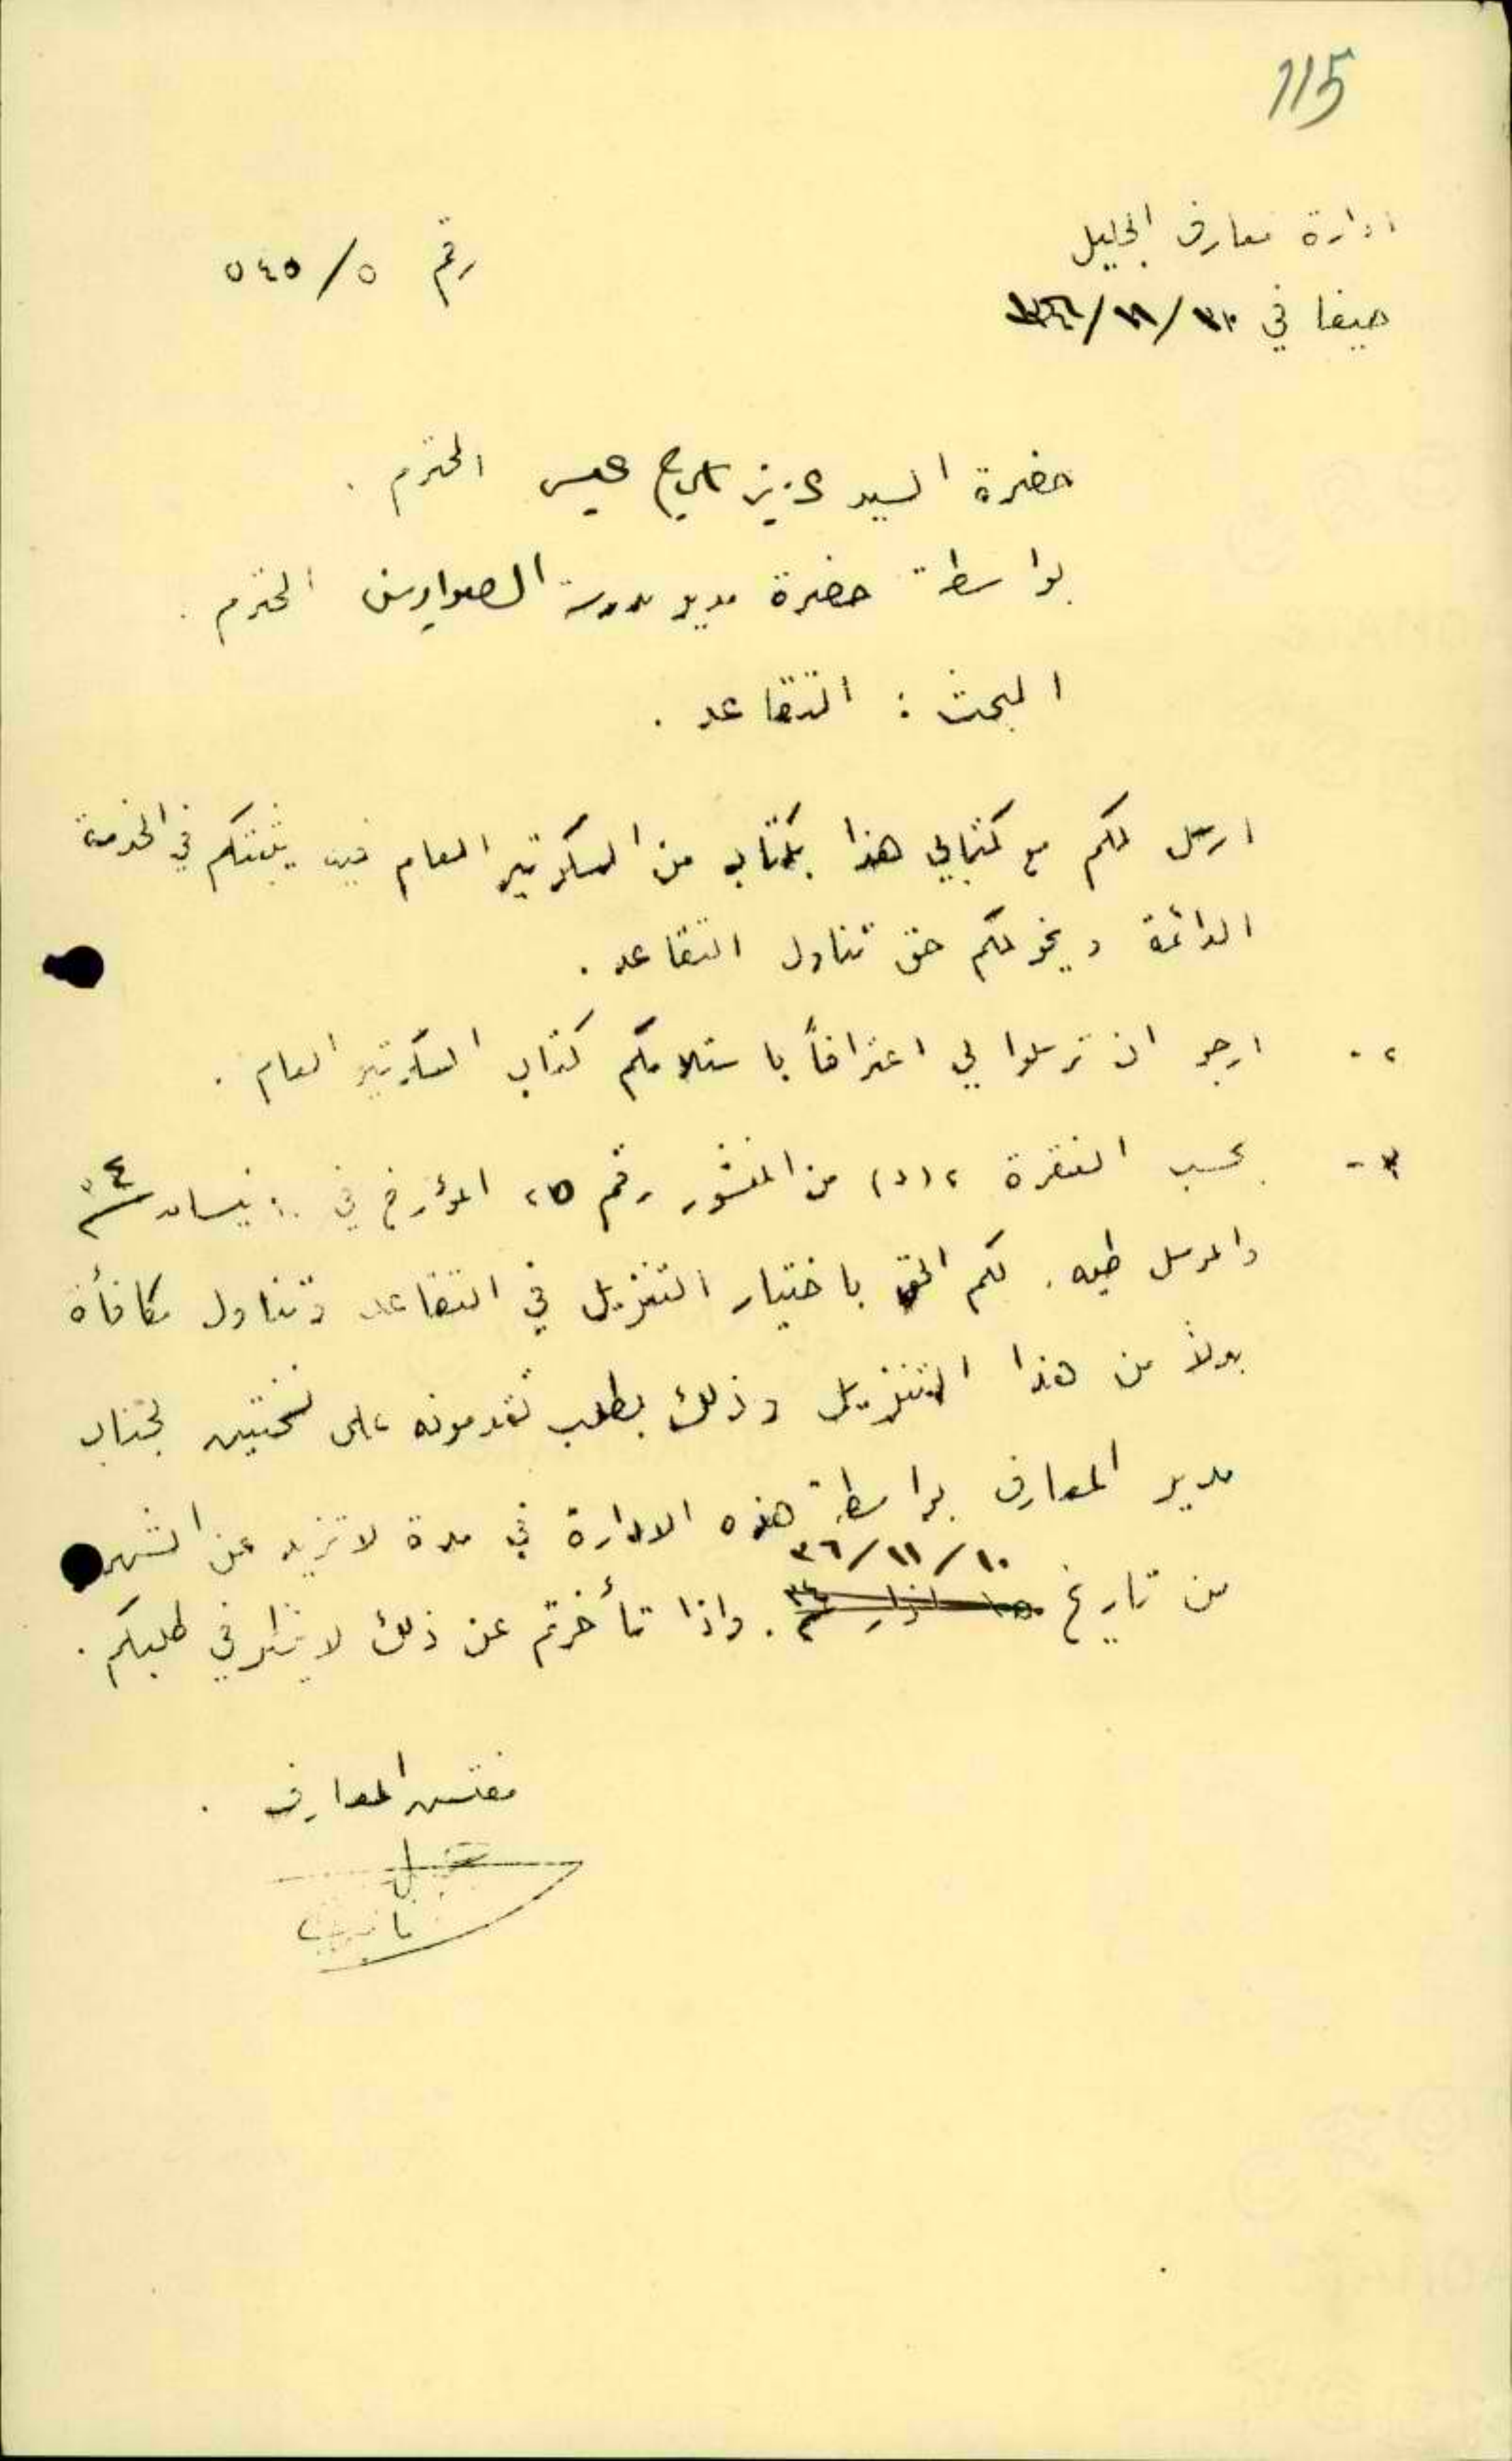 115
ادارة معارف الجليل
رقم ٥/٥٤٥
حيفا في
حضرة السيد عزيز عيسى المحترم .
بواسطة حضرة مدير مدرسة المحترم .
البحث : التقاعد .
ارسل لكم مع كتابي هذا كتاب من السكرتير العام فيه يثبتكم في الخدمة
الدائمة ويخولكم حق تناول التقاعد .
٢- ارجو ان ترسلوا لي اعترافاً باستلامكم كتاب السكرتير العام .
٣- بحسب الفقرة ٢(د) من المنشور رقم ٢٥ المؤرخ في نيسان
والمرسل طيه . لكم الحق باختيار التنزيل في التقاعد وتناول مكافأة
بدلاً من هذا التنزيل وذلك بطلب تقدمونه على نسختين لجناب
مدير المعارف بواسطة هذه الادارة في مدة لا تزيد عن الشهر
١٠/١١/٣٦
من تاريخ . واذا تأخرتم عن ذلك لا ينظر في طلبكم .
مفتش المعارف .